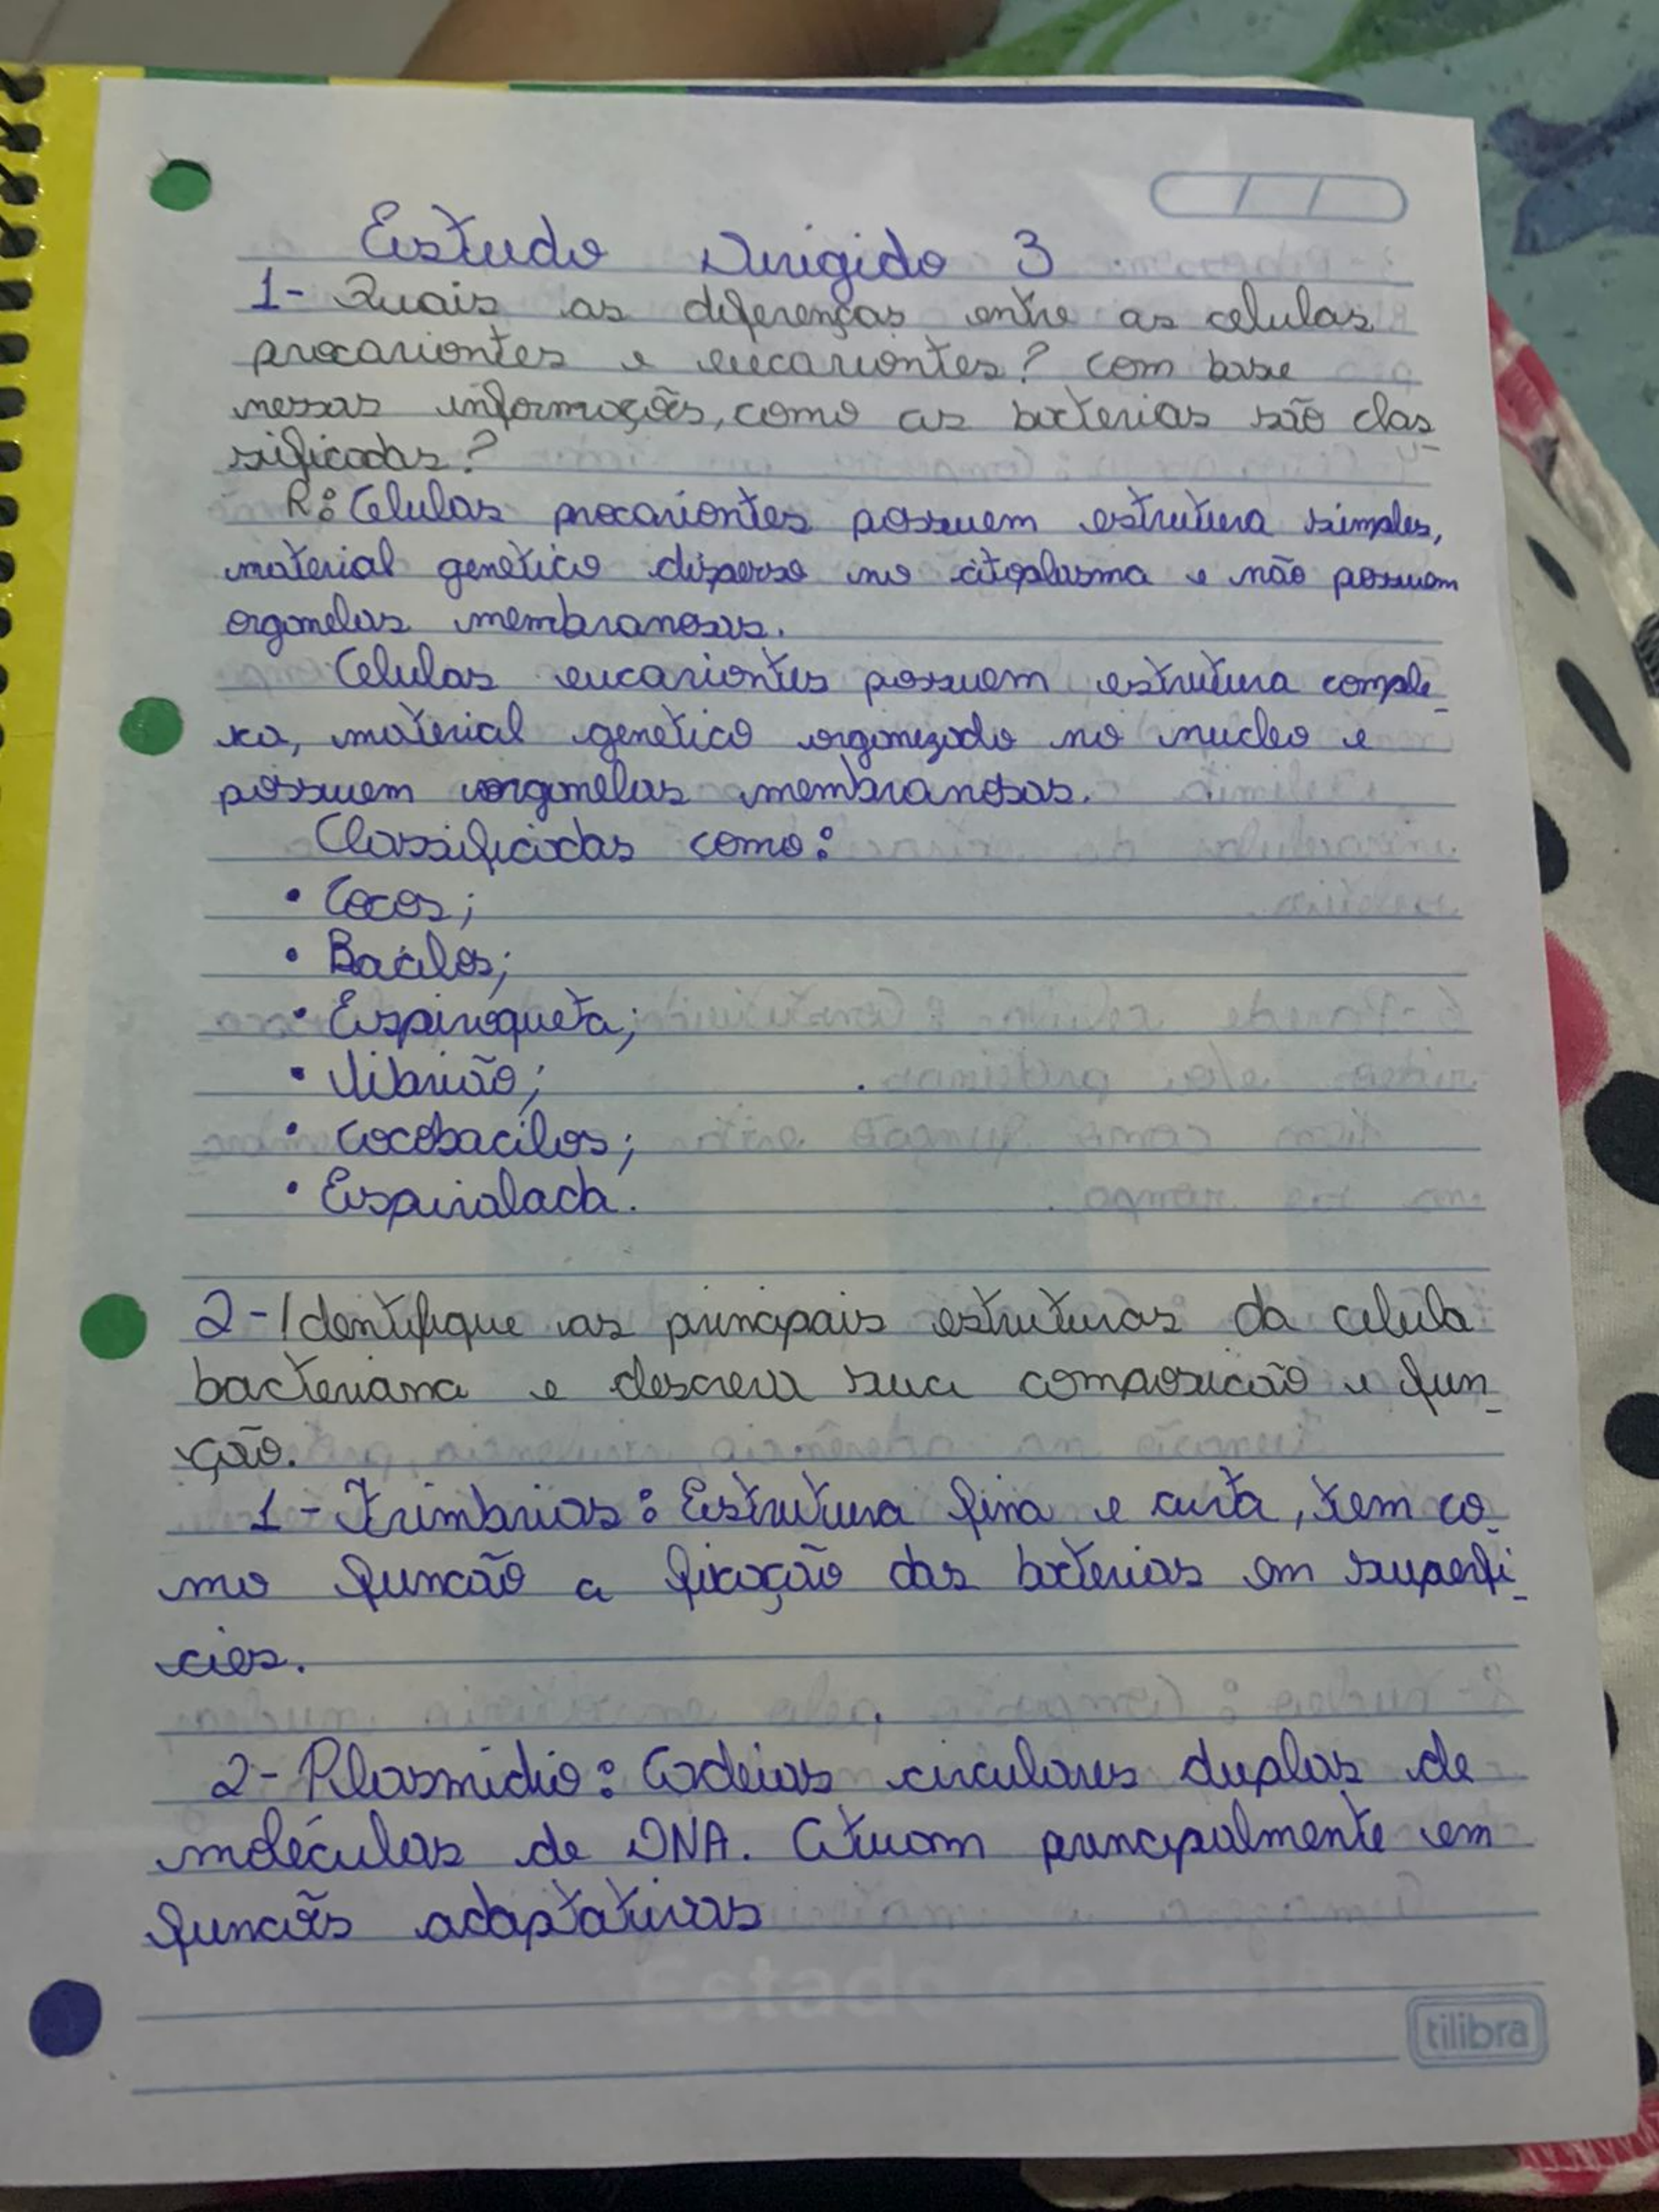 Estudo Dirigido 3
1- Quais as diferenças entre as celulas
procariontes e eucariontes? com base
nessas informações, como as bacterias são clas
sificadas?
R: Celulas procariontes possuem estrutura simples,
material genetico disperso no citoplasma e não possuem
organelas membranosas.
Celulas eucariontes possuem estrutura comple
xa, material genetico organizado no nucleo e
possuem organelas membranosas.
Classificadas como:
• Cocos;
• Bacilos;
• Espiroqueta;
• Vibrião;
• Cocobacilos;
• Espiralada.
2- Identifique as principais estruturas da celula
bacteriana e descreva sua composicão e fun
ção.
1- Frimbrias: Estrutura fina e curta, tem co
mo funcão a fixação das bacterias em superfi
cies.
2- Plasmidio: Cadeias circulares duplas de
moléculas de DNA. Atuam principalmente em
funcões adaptativas
tilibra